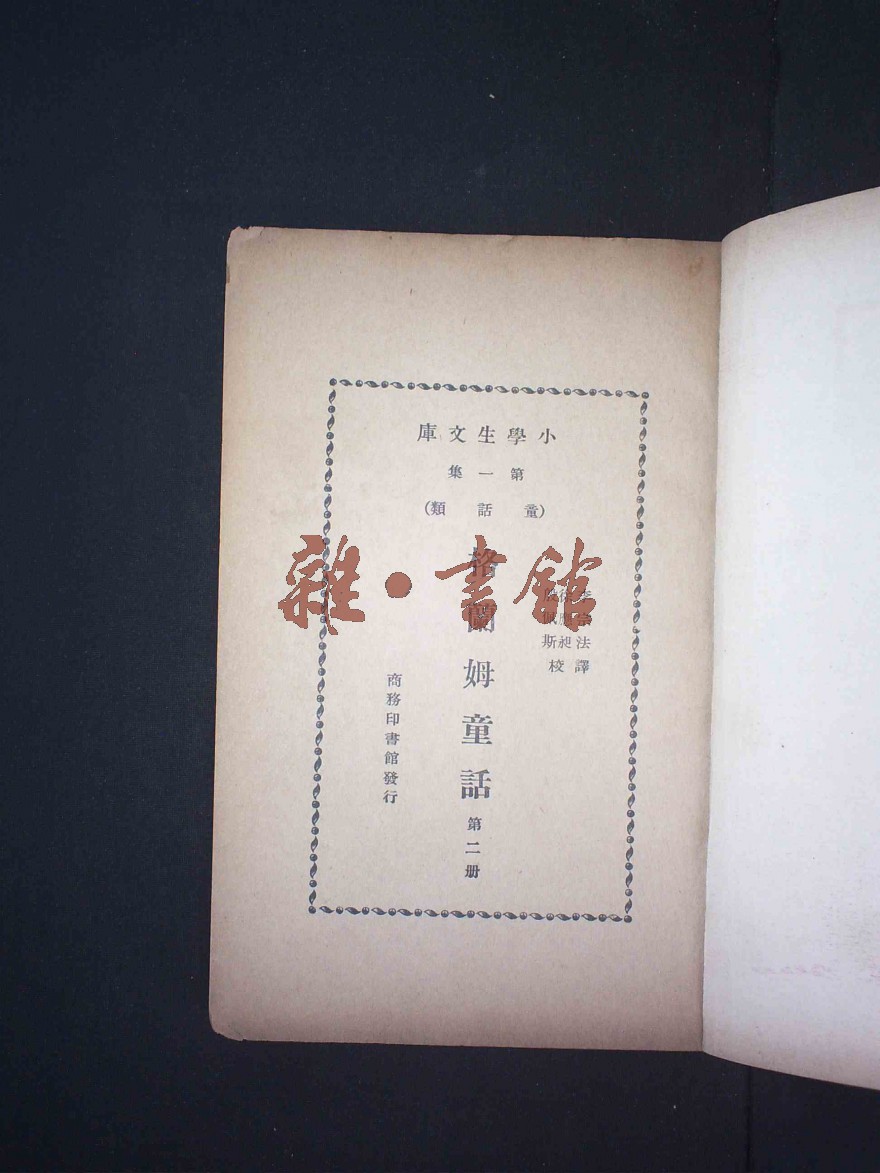 小學生文庫
第一集
(童話類)
法昶斯
譯校
格蘭姆童話 第二册
商務印書館發行
雜·書館